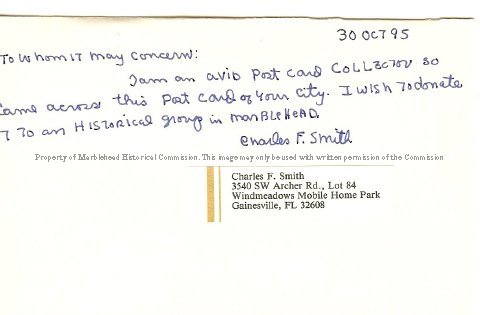 30 OCT 95
To Whom IT may concern:
I am an avid Post Card Collector so
came across this Post Card of your city. I wish to donate
T To an Historical group in marBleHeaD.
Charles F. Smith
Property of Marblehead Historical Commission. This image may only be used with written permission of the Commission
Charles F. Smith
3540 SW Archer Rd., Lot 84
Windmeadows Mobile Home Park
Gainesville, FL 32608